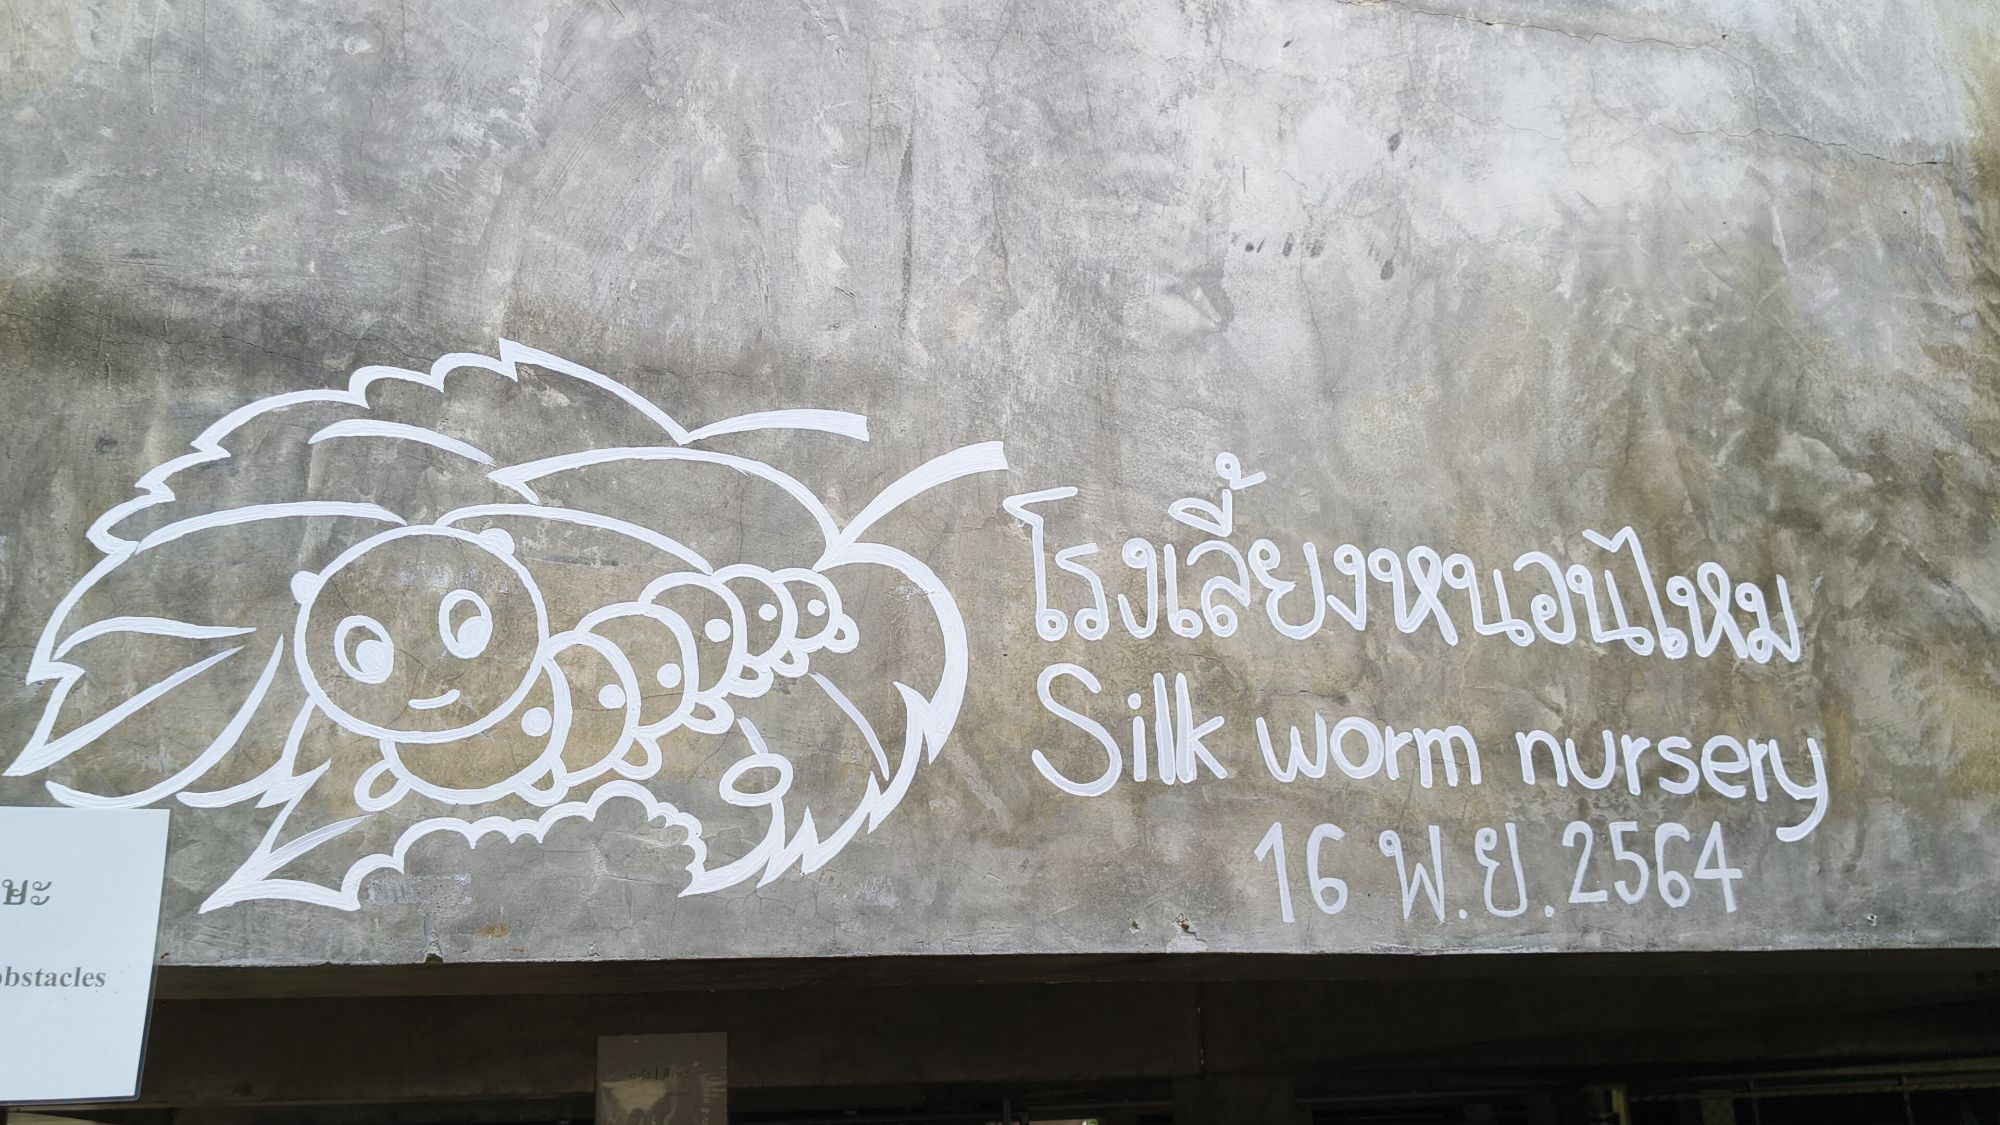 โรงเลี้ยงหนอนไหม
Silk worm nursery
16 พ.ย. 2564
obstacles